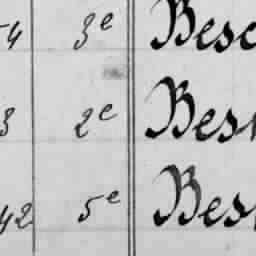 4 3e Besc
3 2e Bes
42 5e Bes